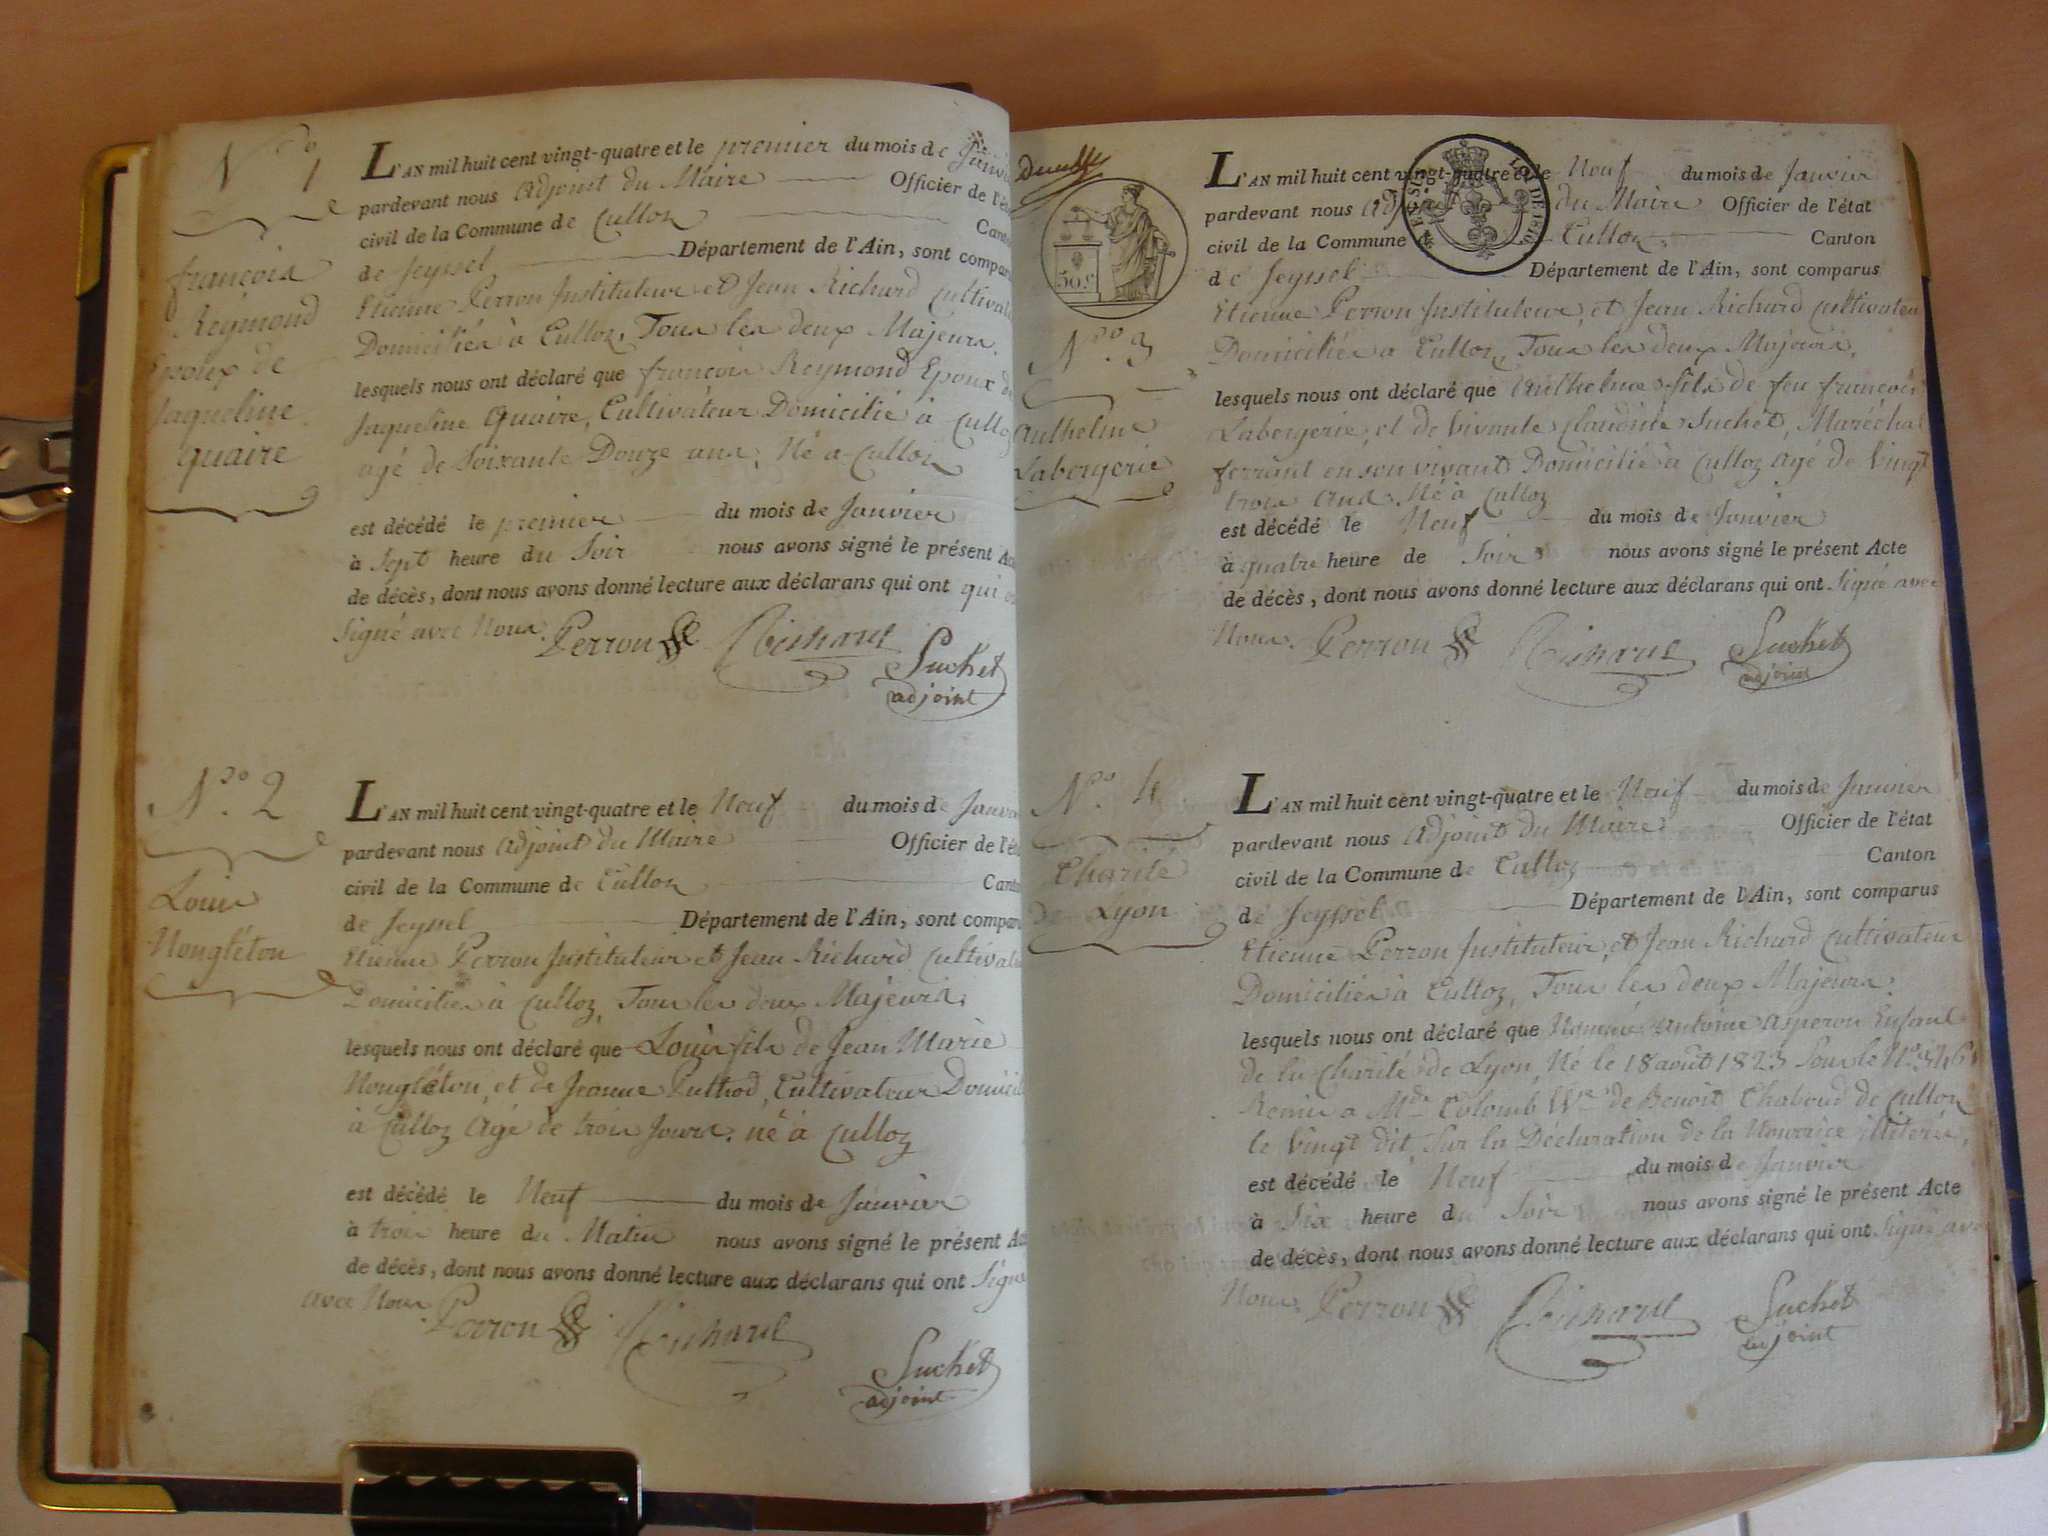 N.o 1
françois
Reymond
Epoux de
Jaqueline
quaire
L'AN mil huit cent vingt-quatre et le premier du mois de Janvi
pardevant nous adjoint du Maire Officier de l'ét
civil de la Commune de Culloz Canto
de Seyssel Département de l'Ain, sont compar
Etienne Perron Instituteur et Jean Richard Cultivat
Domiciliés à Culloz, Tous les deux Majeurs.
lesquels nous ont déclaré que françois Reymond Epoux de
Jaqueline Quaire, Cultivateur Domicilié à Culloz
agé de Soixante Douze ans, Né a Culloz
est décédé le premier du mois de Janvier
à Sept heure du Soir nous avons signé le présent Ac
de décès, dont nous avons donné lecture aux déclarans qui ont qui
Signé avec Nous. Perron Richard
Suchet
adjoint
N.o 2
Louis
Mongléton
L'AN mil huit cent vingt-quatre et le Neuf du mois de Janvi
pardevant nous adjoint du Maire Officier de l'ét
civil de la Commune de Culloz Canto
de Seyssel Département de l'Ain, sont compar
Etienne Perron Instituteur et Jean Richard Cultivat
Domiciliés à Culloz, Tous les deux Majeurs,
lesquels nous ont déclaré que Louis fils de Jean Marie
Mongléton, et de Jeanne Puthod, Cultivateur Domicil
à Culloz Agé de trois Jours. né à Culloz
est décédé le Neuf du mois de Janvier
à trois heure du Matin nous avons signé le présent Ac
de décès, dont nous avons donné lecture aux déclarans qui ont Signé
avec Nous. Perron Richard
Suchet
adjoint
50.c
LOI DE 1816
N.o 3
Anthelme
Labergerie
L'AN mil huit cent vingt-quatre et le Neuf du mois de Janvier
pardevant nous Adjoint du Maire Officier de l'état
civil de la Commune de Culloz Canton
de Seyssel Département de l'Ain, sont comparus
Etienne Perron Instituteur, et Jean Richard Cultivateu
Domiciliés a Culloz, Tous les deux Majeurs,
lesquels nous ont déclaré que Anthelme fils de feu françois
Labergerie, et de vivante Claudine Suchet, Maréchal
ferrant en son vivant Domicilié à Culloz Agé de Vingt
trois Ans. Né à Culloz
est décédé le Neuf du mois de Janvier
à quatre heure de Soir nous avons signé le présent Acte
de décès, dont nous avons donné lecture aux déclarans qui ont Signé avec
Nous. Perron Richard Suchet
adjoint
N.o 4
Charité
de Lyon
L'AN mil huit cent vingt-quatre et le Neuf du mois de Janvier
pardevant nous Adjoint du Maire Officier de l'état
civil de la Commune de Culloz Canton
de Seyssel Département de l'Ain, sont comparus
Etienne Perron Instituteur, et Jean Richard Cultivateur
Domiciliés à Culloz, Tous les deux Majeurs.
lesquels nous ont déclaré que Nommé Antoine Asperon Enfant
de la Charité de Lyon, Né le 18 août 1823 Sous le N.o
Remis a Mde Colomb Ve de Benoit Chaboud de Culloz
le Vingt dit, Sur la Déclaration de la Nourrice
est décédé le Neuf du mois de Janvier
à Six heure du Soir nous avons signé le présent Acte
de décès, dont nous avons donné lecture aux déclarans qui ont Signé avec
Nous. Perron Richard Suchet
adjoint